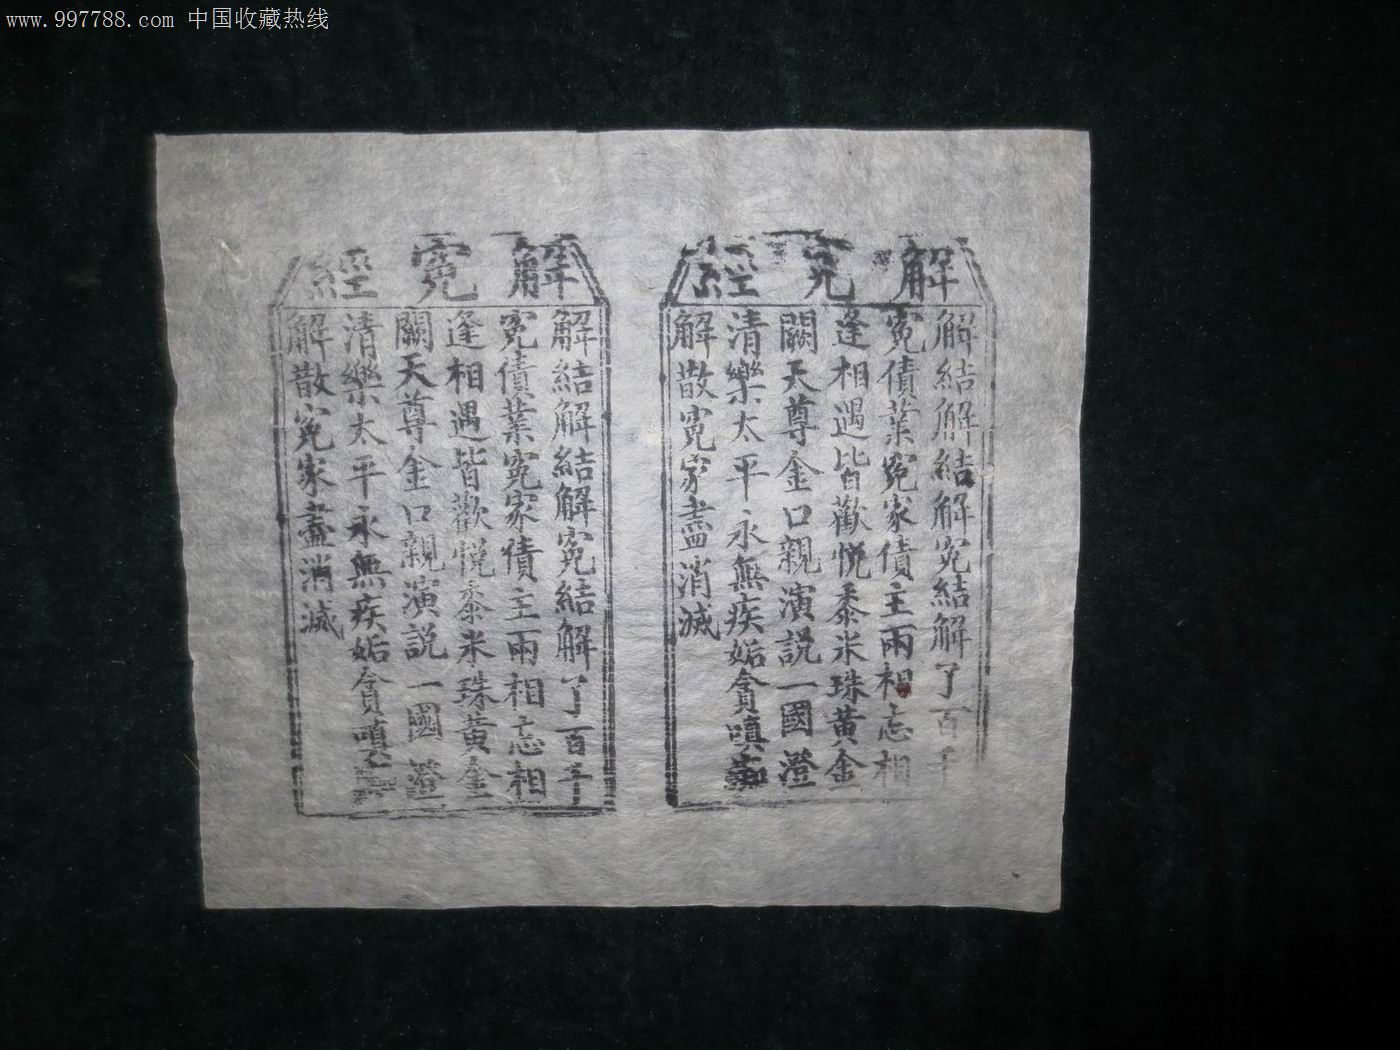 www.997788.com 中国收藏热线
解冤經
解結解結解冤結解了百千
冤債業冤家債主兩相忘相
逢相遇皆歡悅黍米珠黄金
闕天尊金口親演説一國澄
清樂太平永無疾妬貪嗔痴
解散冤家盡消滅
解冤經
解結解結解冤結解了百千
冤債業冤家債主兩相忘相
逢相遇皆歡悅黍米珠黄金
闕天尊金口親演説一國澄
清樂太平永無疾妬貪嗔
解散冤家盡消滅